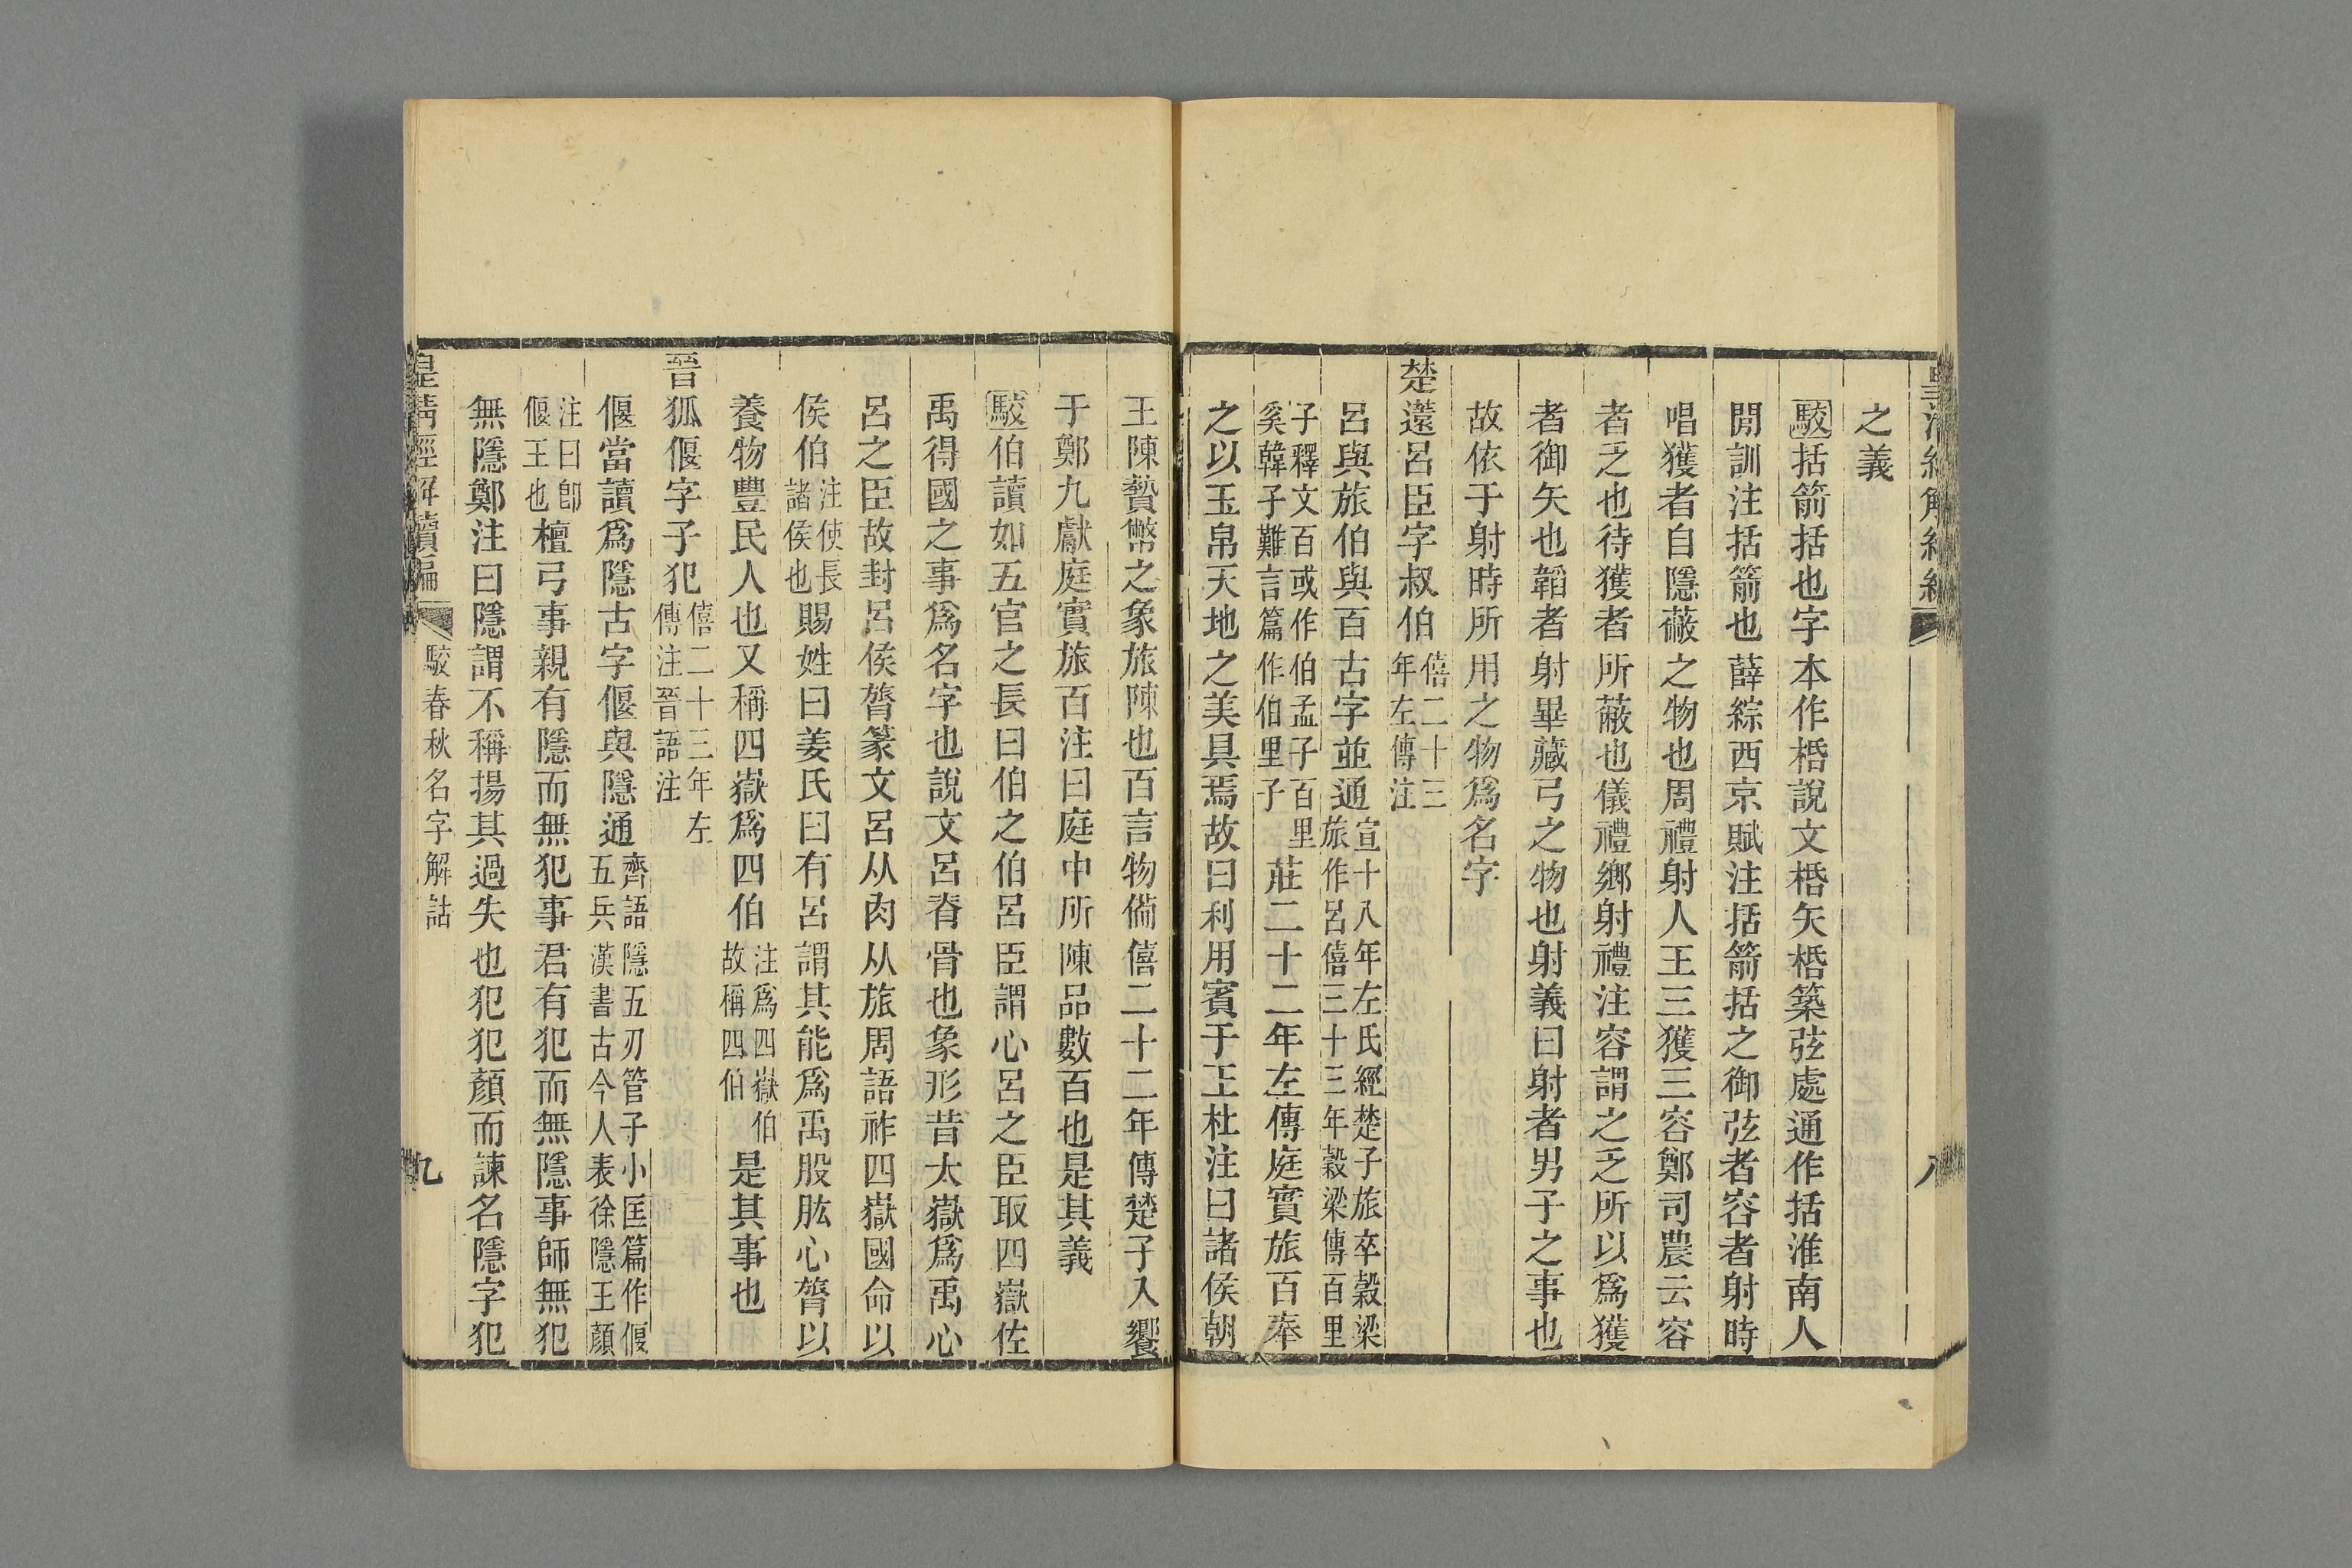 之義
駮括箭括也字本作桰說文桰矢桰築弦處通作括淮南人
閒訓注括箭也薛綜西京賦注括箭括之御弦者容者射時
唱獲者自隱蔽之物也周禮射人王三獲三容鄭司農云容
者乏也待獲者所蔽也儀禮鄉射禮注容謂之乏所以爲獲
者御矢也韜者射畢藏弓之物也射義曰射者男子之事也
故依于射時所用之物爲名字
楚薳呂臣字叔伯僖二十三年左傳注
呂與旅伯與百古字並通宣十八年左氏經楚子旅卒穀梁旅作呂僖三十三年穀梁傳百里
子釋文百或作伯孟子百里奚韓子難言篇作伯里子莊二十二年左傳庭實旅百奉
之以玉帛天地之美具焉故曰利用賓于王杜注曰諸侯朝
王陳贄幣之象旅陳也百言物備僖二十二年傳楚子入饗
于鄭九獻庭實旅百注曰庭中所陳品數百也是其義
駮伯讀如五官之長曰伯之伯呂臣謂心呂之臣取四嶽佐
禹得國之事爲名字也說文呂脊骨也象形昔太嶽爲禹心
呂之臣故封呂侯膂篆文呂从肉从旅周語祚四嶽國命以
侯伯注使長諸侯也賜姓曰姜氏曰有呂謂其能爲禹股肱心膂以
養物豐民人也又稱四嶽爲四伯注爲四嶽伯故稱四伯是其事也
晉狐偃字子犯僖二十三年左傳注晉語注
偃當讀爲隱古字偃與隱通齊語隱五刃管子小匡篇作偃五兵漢書古今人表徐隱王顏
注曰卽偃王也檀弓事親有隱而無犯事君有犯而無隱事師無犯
無隱鄭注曰隱謂不稱揚其過失也犯犯顏而諫名隱字犯
皇清經解續編 駮春秋名字解詁 九